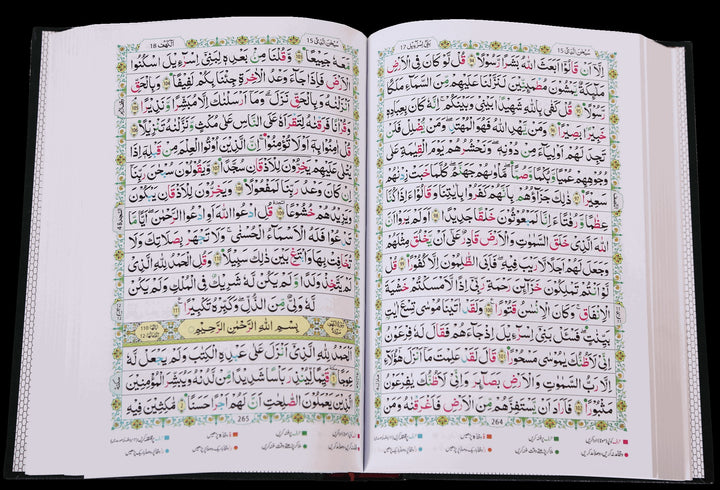 سُبْحٰنَ الَّذِیْۤ 15 بَنِیْۤ اِسْرَآءِیْل 17
اِلَّاۤ اَنْ قَالُوْۤا اَبَعَثَ اللّٰهُ بَشَرًا رَّسُوْلًا قُلْ لَّوْ كَانَ فِی الْاَرْضِ
مَلٰٓىِٕكَةٌ یَّمْشُوْنَ مُطْمَىِٕنِّیْنَ لَنَزَّلْنَا عَلَیْهِمْ مِّنَ السَّمَآءِ مَلَكًا
رَّسُوْلًا قُلْ كَفٰی بِاللّٰهِ شَهِیْدًۢا بَیْنِیْ وَبَیْنَكُمْ ؕ اِنَّهٗ كَانَ بِعِبَادِهٖ
خَبِیْرًۢا بَصِیْرًا وَمَنْ یَّهْدِ اللّٰهُ فَهُوَ الْمُهْتَدِ ۚ وَمَنْ یُّضْلِلْ فَلَنْ
تَجِدَ لَهُمْ اَوْلِیَآءَ مِنْ دُوْنِهٖ ؕ وَنَحْشُرُهُمْ یَوْمَ الْقِیٰمَةِ عَلٰی
وُجُوْهِهِمْ عُمْیًا وَّبُكْمًا وَّصُمًّا ؕ مَاْوٰىهُمْ جَهَنَّمُ ؕ كُلَّمَا خَبَتْ زِدْنٰهُمْ
سَعِیْرًا ذٰلِكَ جَزَآؤُهُمْ بِاَنَّهُمْ كَفَرُوْا بِاٰیٰتِنَا وَقَالُوْۤا ءَاِذَا كُنَّا
عِظَامًا وَّرُفَاتًا ءَاِنَّا لَمَبْعُوْثُوْنَ خَلْقًا جَدِیْدًا اَوَلَمْ یَرَوْا اَنَّ
اللّٰهَ الَّذِیْ خَلَقَ السَّمٰوٰتِ وَالْاَرْضَ قَادِرٌ عَلٰۤی اَنْ یَّخْلُقَ مِثْلَهُمْ
وَجَعَلَ لَهُمْ اَجَلًا لَّا رَیْبَ فِیْهِ ؕ فَاَبَی الظّٰلِمُوْنَ اِلَّا كُفُوْرًا قُلْ
لَّوْ اَنْتُمْ تَمْلِكُوْنَ خَزَآىِٕنَ رَحْمَةِ رَبِّیْۤ اِذًا لَّاَمْسَكْتُمْ خَشْیَةَ
الْاِنْفَاقِ ؕ وَكَانَ الْاِنْسَانُ قَتُوْرًا وَلَقَدْ اٰتَیْنَا مُوْسٰی تِسْعَ اٰیٰتٍۭ
بَیِّنٰتٍ فَسْـَٔلْ بَنِیْۤ اِسْرَآءِیْلَ اِذْ جَآءَهُمْ فَقَالَ لَهٗ فِرْعَوْنُ
اِنِّیْ لَاَظُنُّكَ یٰمُوْسٰی مَسْحُوْرًا قَالَ لَقَدْ عَلِمْتَ مَاۤ اَنْزَلَ هٰۤؤُلَآءِ
اِلَّا رَبُّ السَّمٰوٰتِ وَالْاَرْضِ بَصَآىِٕرَ ۚ وَاِنِّیْ لَاَظُنُّكَ یٰفِرْعَوْنُ
مَثْبُوْرًا فَاَرَادَ اَنْ یَّسْتَفِزَّهُمْ مِّنَ الْاَرْضِ فَاَغْرَقْنٰهُ وَمَنْ
264
سُبْحٰنَ الَّذِیْۤ 15 اَلْكَهْف 18
مَّعَهٗ جَمِیْعًا وَّقُلْنَا مِنْۢ بَعْدِهٖ لِبَنِیْۤ اِسْرَآءِیْلَ اسْكُنُوا
الْاَرْضَ فَاِذَا جَآءَ وَعْدُ الْاٰخِرَةِ جِئْنَا بِكُمْ لَفِیْفًا وَبِالْحَقِّ
اَنْزَلْنٰهُ وَبِالْحَقِّ نَزَلَ ؕ وَمَاۤ اَرْسَلْنٰكَ اِلَّا مُبَشِّرًا وَّنَذِیْرًا
وَقُرْاٰنًا فَرَقْنٰهُ لِتَقْرَاَهٗ عَلَی النَّاسِ عَلٰی مُكْثٍ وَّنَزَّلْنٰهُ تَنْزِیْلًا
قُلْ اٰمِنُوْا بِهٖۤ اَوْ لَا تُؤْمِنُوْا ؕ اِنَّ الَّذِیْنَ اُوْتُوا الْعِلْمَ مِنْ قَبْلِهٖۤ اِذَا
یُتْلٰی عَلَیْهِمْ یَخِرُّوْنَ لِلْاَذْقَانِ سُجَّدًا وَّیَقُوْلُوْنَ سُبْحٰنَ رَبِّنَاۤ
اِنْ كَانَ وَعْدُ رَبِّنَا لَمَفْعُوْلًا وَیَخِرُّوْنَ لِلْاَذْقَانِ یَبْكُوْنَ
وَیَزِیْدُهُمْ خُشُوْعًا قُلِ ادْعُوا اللّٰهَ اَوِ ادْعُوا الرَّحْمٰنَ ؕ اَیًّا مَّا
تَدْعُوْا فَلَهُ الْاَسْمَآءُ الْحُسْنٰی ۚ وَلَا تَجْهَرْ بِصَلَاتِكَ وَلَا
تُخَافِتْ بِهَا وَابْتَغِ بَیْنَ ذٰلِكَ سَبِیْلًا وَقُلِ الْحَمْدُ لِلّٰهِ الَّذِیْ
لَمْ یَتَّخِذْ وَلَدًا وَّلَمْ یَكُنْ لَّهٗ شَرِیْكٌ فِی الْمُلْكِ وَلَمْ یَكُنْ
لَّهٗ وَلِیٌّ مِّنَ الذُّلِّ وَكَبِّرْهُ تَكْبِیْرًا
بِسْمِ اللّٰهِ الرَّحْمٰنِ الرَّحِیْمِ
اَلْحَمْدُ لِلّٰهِ الَّذِیْۤ اَنْزَلَ عَلٰی عَبْدِهِ الْكِتٰبَ وَلَمْ یَجْعَلْ لَّهٗ
عِوَجًا قَیِّمًا لِّیُنْذِرَ بَاْسًا شَدِیْدًا مِّنْ لَّدُنْهُ وَیُبَشِّرَ الْمُؤْمِنِیْنَ
الَّذِیْنَ یَعْمَلُوْنَ الصّٰلِحٰتِ اَنَّ لَهُمْ اَجْرًا حَسَنًا مَّاكِثِیْنَ فِیْهِ
265